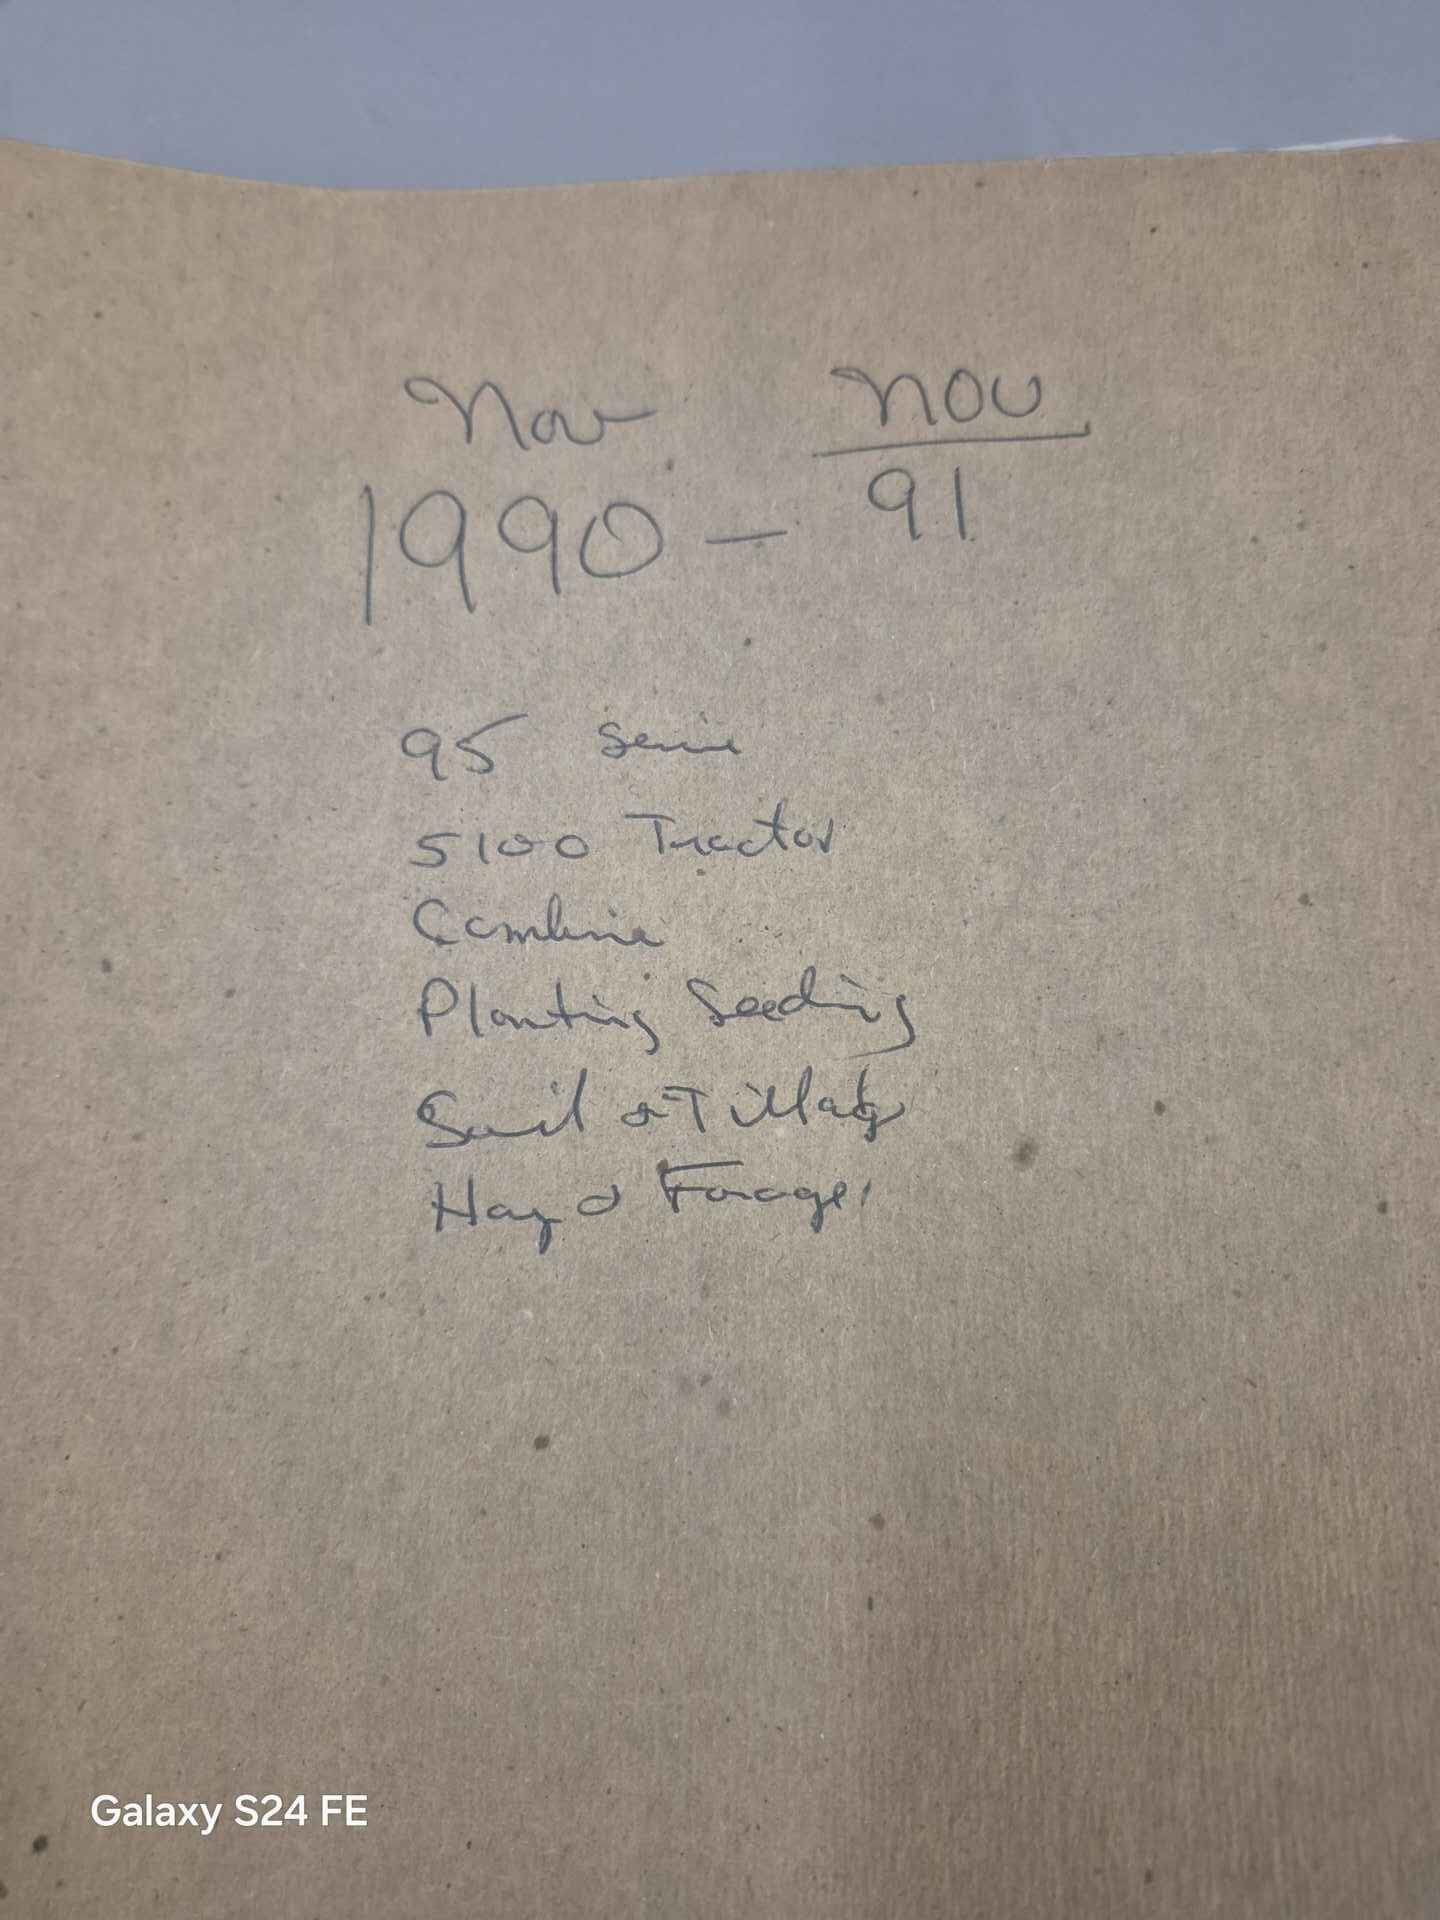 Nov nov
1990 - 91
95 Serie
5100 Tractor
Combine
Planting Seeding
Soil & Tillage
Hay & Forage
Galaxy S24 FE